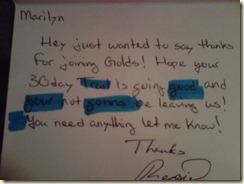 Marilyn
Hey just wanted to say thanks
for joining Golds! Hope your
30 day Trail Is going good and
your not gonna be leaving us!
You need anything let me know!
Thanks